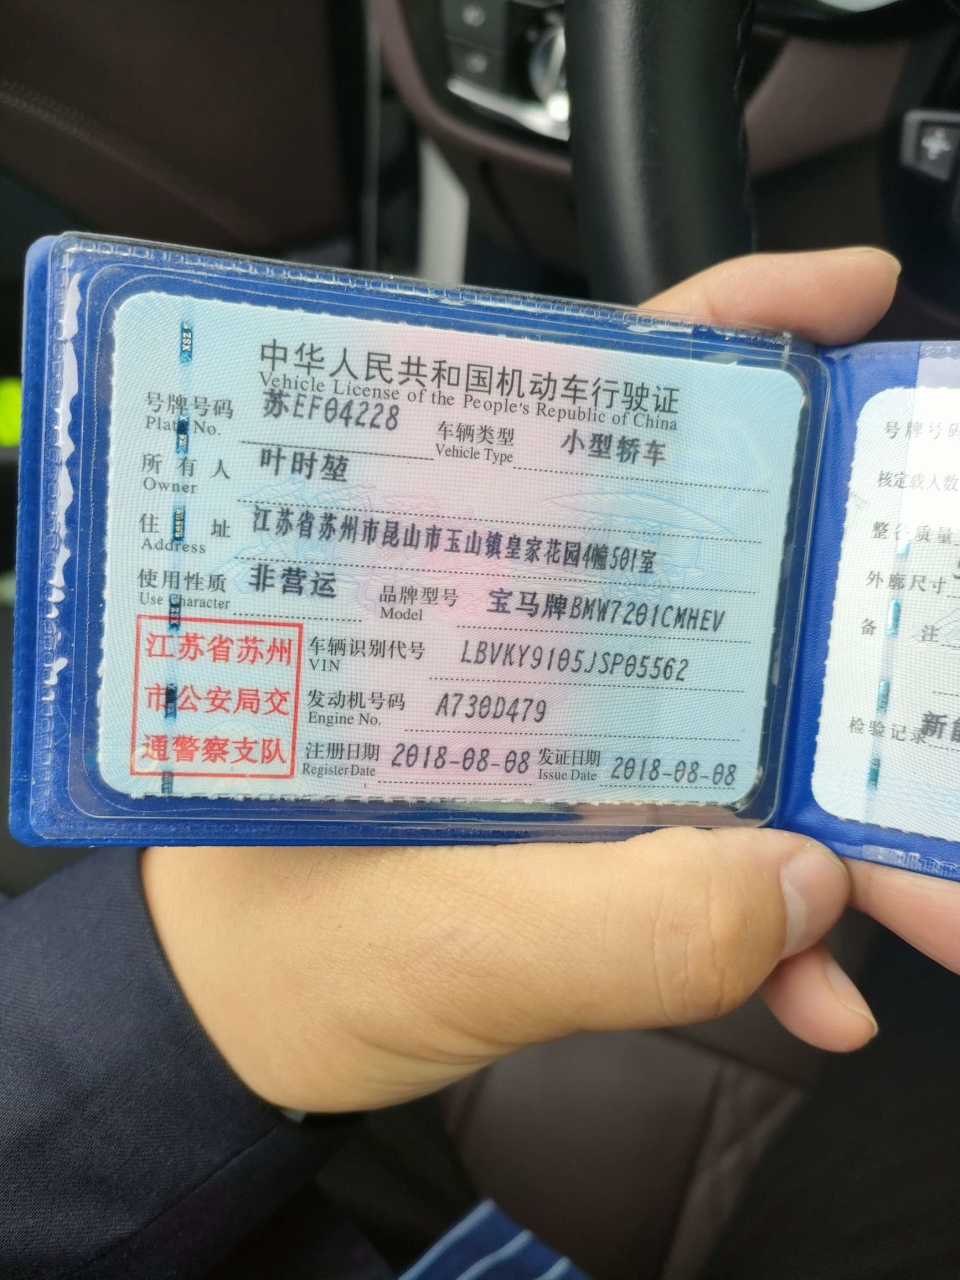 中华人民共和国机动车行驶证
Vehicle License of the People's Republic of China
号牌号码 苏EF04228 车辆类型 小型轿车
Plate No. Vehicle Type
所有人 叶时堃
Owner
住址 江苏省苏州市昆山市玉山镇皇家花园4幢501室
Address
使用性质 非营运 品牌型号 宝马牌BMW7201CMHEV
Use Character Model
江苏省苏州
市公安局交
通警察支队
车辆识别代号 LBVKY9105JSP05562
VIN
发动机号码 A730D479
Engine No.
注册日期 2018-08-08 发证日期 2018-08-08
Register Date Issue Date
号牌号码
核定载人数
整备质量
外廓尺寸
备注
检验记录 新能